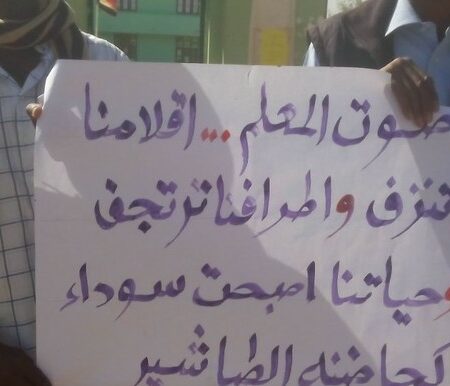 صوت المعلم ... اقلامنا
تنزف واطرافنا ترتجف
وحياتنا اصبحت سوداء
كحاضنه الطباشير